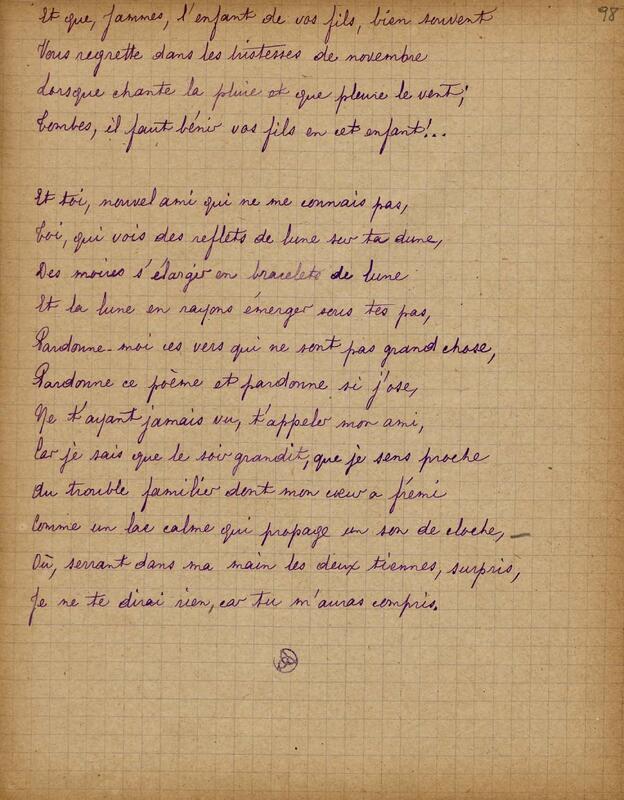 98
Et que, Jammes, l'enfant de vos fils, bien souvent
Vous regrette dans les tristesses de novembre
Lorsque chante la pluie et que pleure le vent;
Tombes, il faut bénir vos fils en cet enfant!..
Et toi, nouvel ami qui ne me connais pas,
Toi, qui vois des reflets de lune sur ta dune,
Des moires s'élargir en bracelets de lune
Et la lune en rayons émerger sous tes pas,
Pardonne-moi ces vers qui ne sont pas grand chose,
Pardonne ce poème et pardonne si j'ose,
Ne t'ayant jamais vu, t'appeler mon ami,
Car je sais que le soir grandit, que je sens proche
Au trouble familier dont mon cœur a frémi
Comme un lac calme qui propage un son de cloche, —
Où, serrant dans ma main les deux tiennes, surpris,
Je ne te dirai rien, car tu m'auras compris.